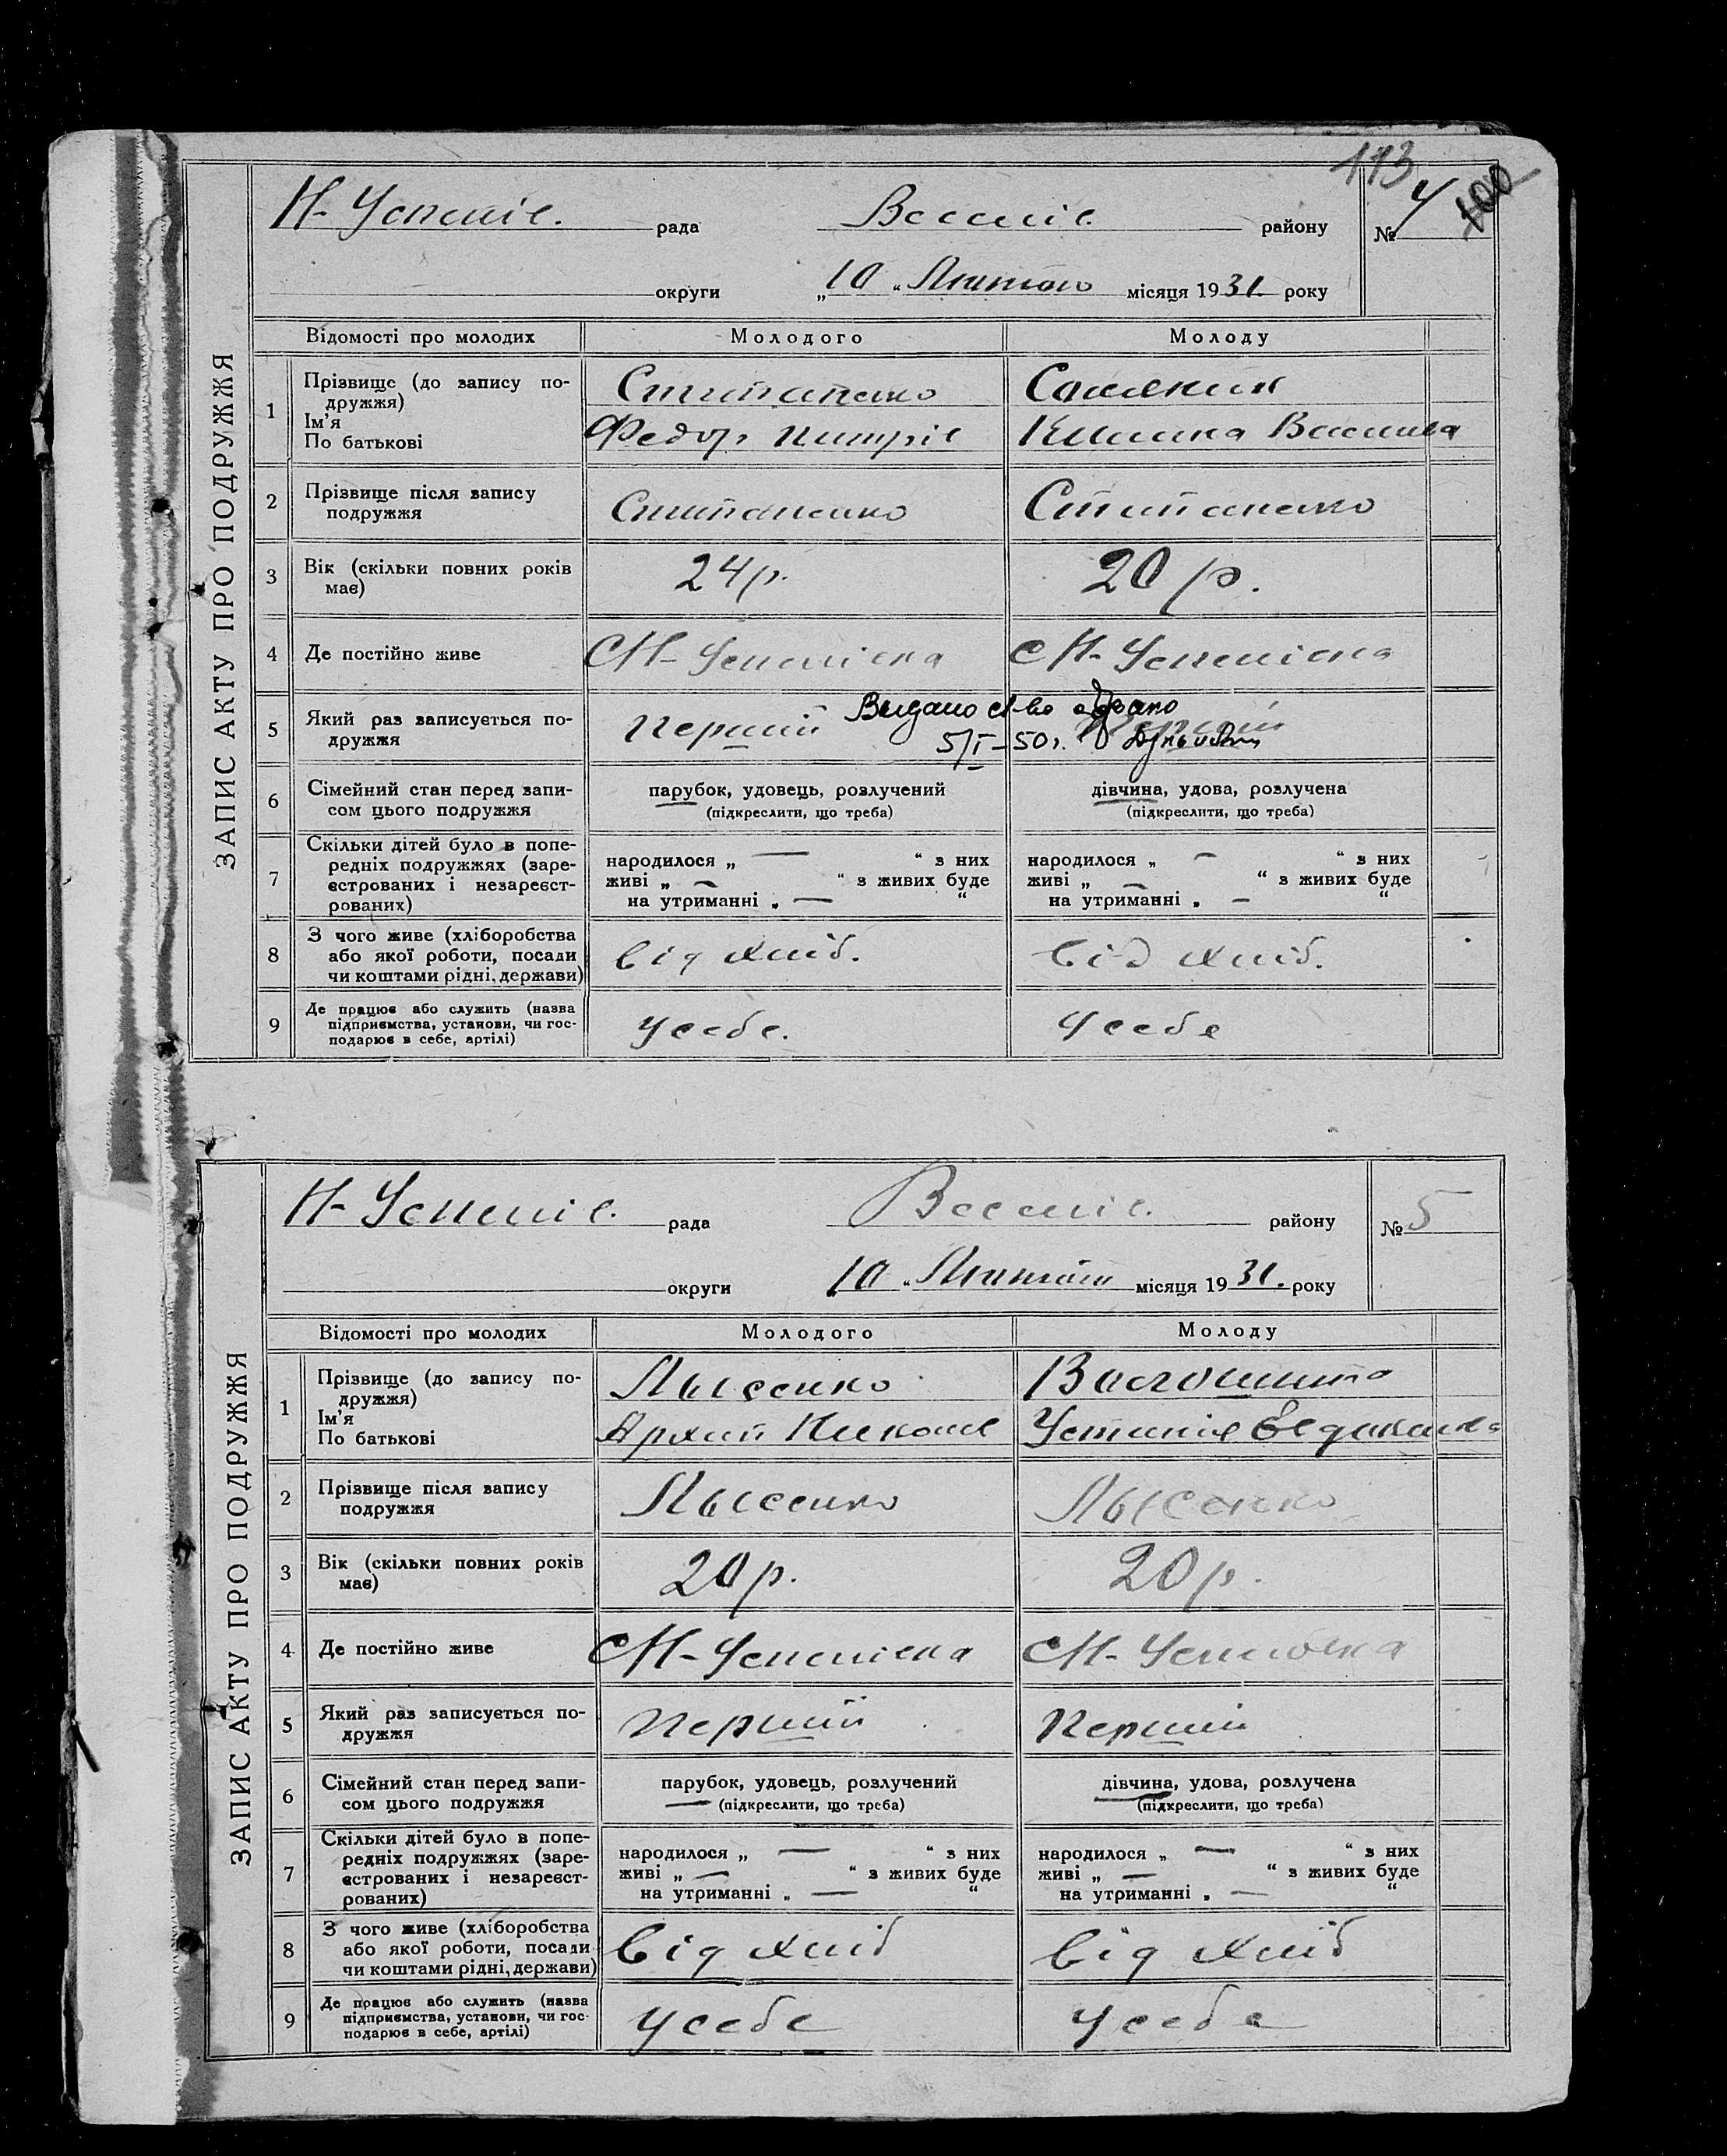 113
Н-Успенів. рада Веселів. району № 4 100
округи „10“ Лютого місяця 1931 року
ЗАПИС АКТУ ПРО ПОДРУЖЖЯ
Відомості про молодих Молодого Молоду
1 Прізвище (до запису по-
дружжя)
Ім’я
По батькові
Федор
2 Прізвище після запису
подружжя
3 Вік (скільки повних років
має)
24 р. 20 р.
4 Де постійно живе
С Н-Успенівка С Н-Успенівка
5 Який раз записується по-
дружжя
Перший Перший
Видано
5/I-50 г.
6 Сімейний стан перед запи-
сом цього подружжя
парубок, удовець, розлучений дівчина, удова, розлучена
(підкреслити, що треба) (підкреслити, що треба)
7 Скільки дітей було в попе-
редніх подружжях (заре-
єстрованих і незареєст-
рованих)
народилося „ — “ з них народилося „ — “ з них
живі „ — “ з живих буде живі „ — “ з живих буде
на утриманні „ — “ на утриманні „ — “
8 З чого живе (хліборобства
або якої роботи, посади
чи коштами рідні, держави)
від хліб. від хліб.
9 Де працює або служить (назва
підприємства, установи, чи гос-
подарює в себе, артілі)
у себе. у себе
Н-Успенів. рада Веселів. району № 5
округи „10“ місяця 1931. року
ЗАПИС АКТУ ПРО ПОДРУЖЖЯ
Відомості про молодих Молодого Молоду
1 Прізвище (до запису по-
дружжя)
Ім’я
По батькові
Лысенко
Архип Устинія
2 Прізвище після запису
подружжя
Лысенко Лысенко
3 Вік (скільки повних років
має)
20 р. 20 р.
4 Де постійно живе
С Н-Успенівка С Н-Успенівка
5 Який раз записується по-
дружжя
Перший Перший
6 Сімейний стан перед запи-
сом цього подружжя
парубок, удовець, розлучений дівчина, удова, розлучена
(підкреслити, що треба) (підкреслити, що треба)
7 Скільки дітей було в попе-
редніх подружжях (заре-
єстрованих і незареєст-
рованих)
народилося „ — “ з них народилося „ — “ з них
живі „ — “ з живих буде живі „ — “ з живих буде
на утриманні „ — “ на утриманні „ — “
8 З чого живе (хліборобства
або якої роботи, посади
чи коштами рідні, держави)
від хліб від хліб
9 Де працює або служить (назва
підприємства, установи, чи гос-
подарює в себе, артілі)
у себе у себе